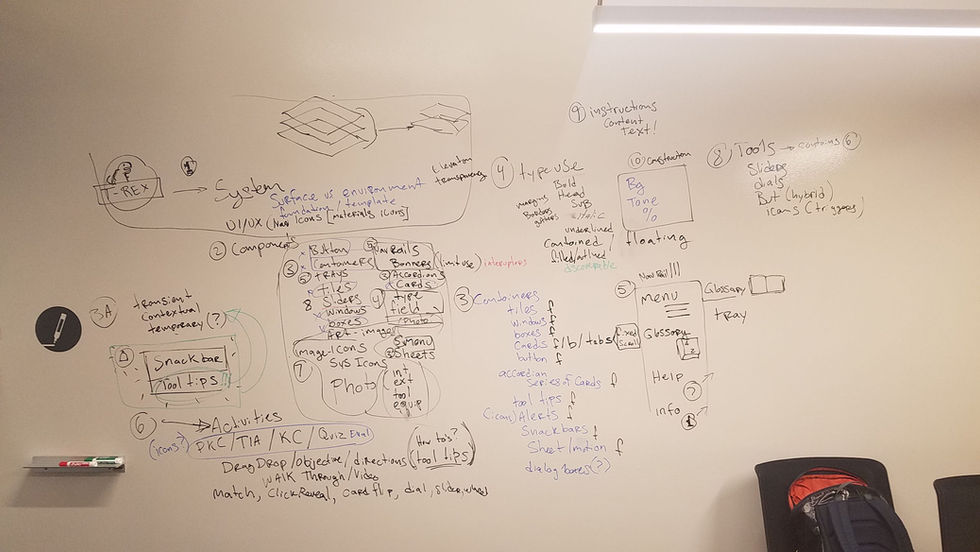 T-REX
1
System
Surface vs environment
foundation/template
UI/UX (Nav Icons [materials icons]
Elevation
transparency
2 Components
3
Button
Containers
TRAYS
Tiles
8 Sliders
Windows
boxes
ART - images
image-Icons
Sys Icons
7
Photo
int
ext
tool
equip
5 Nav Rails
Banners (limit use) interruptors
3 Accordions
Cards
4 type
field
Photo
5 menu
Sheets
3A
transient
contextual
temporary (?)
Snackbar
Tool tips
6 Activities
(icons?) PKC/TIA/KC/Quiz Eval
Drag Drop/Objective/directions
How to's?
(tool tips)
WALK Through/Video
Match, Click Reveal, Card flip, dial, slider,
9 instructions
Content
Text!
4 type use
Bold
Head
Sub
italic
underlined
margins
Borders
gutters
Contained/
filled/
10 Construction
Bg
Tone
%
floating
8 Tools → contains 6
Sliders
dials
But (hybrid)
icons (triggers)
3 Containers
tiles f
windows f
boxes f
Cards f/b/tabs
fixed
Scroll
button f
accordian
Series of Cards f
tool tips f
(icon) Alerts f
Snackbars f
Sheet/motion f
dialog boxes (?)
5
Nav Rail
menu
Glossary
tray
Glossary
Help
?
info
i